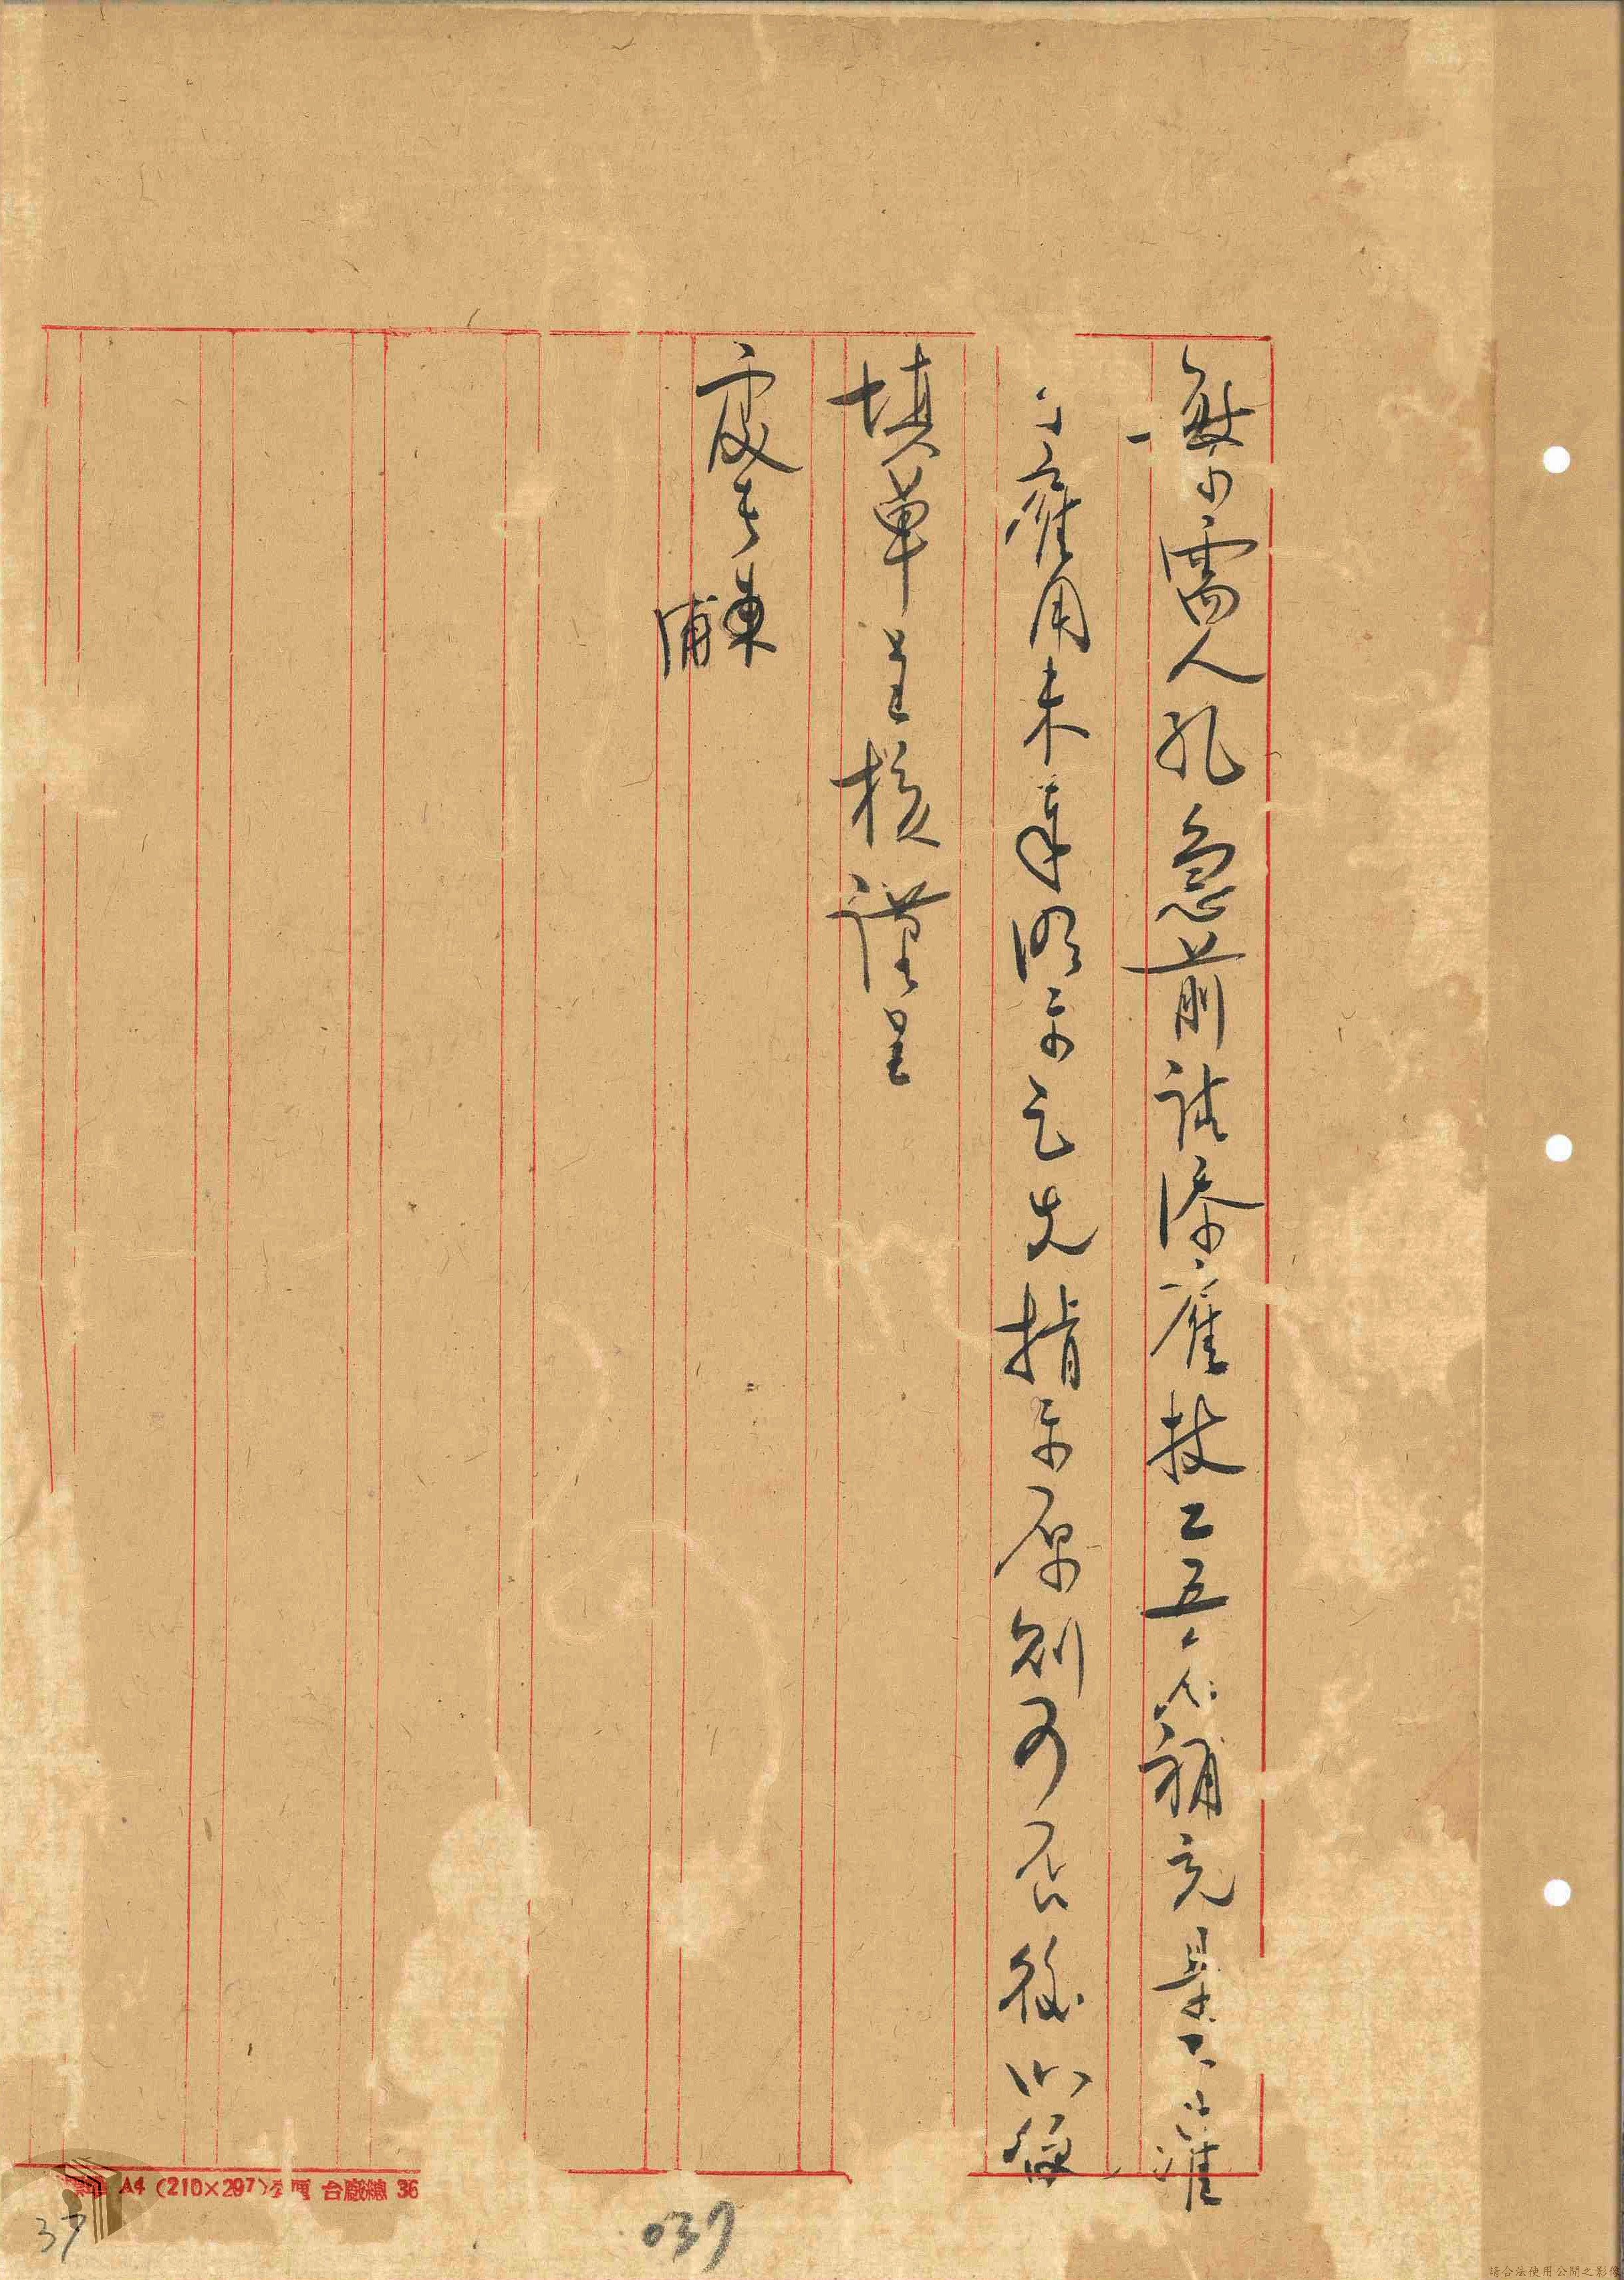 需人孔急前請添雇技工五人補充是否准
予雇用未奉明示乞先指示原則可否後以便
填單呈核謹呈
處長陳
A4 (210×297)公厘 台廳總 36
037
37
請合法使用公開之影像